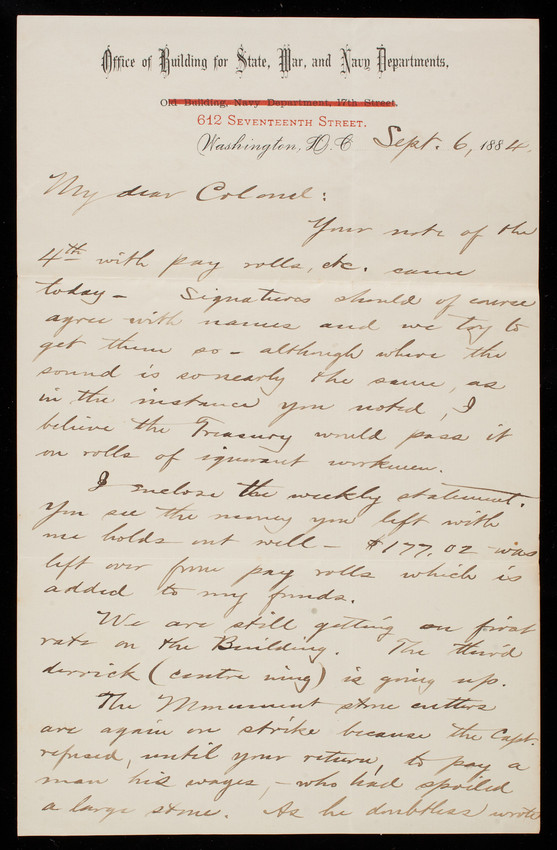 Office of Building for State, War, and Navy Departments,
Old Building, Navy Department, 17th Street.
612 Seventeenth Street.
Washington, D.C. Sept. 6, 1884.
My dear Colonel:
Your note of the
4th with pay rolls, etc. came
today – Signatures should of course
agree with names and we try to
get them so – although where the
sound is so nearly the same, as
in the instance you noted, I
believe the Treasury would pass it
on rolls of ignorant workmen.
I inclose the weekly statement.
You see the money you left with
me holds out well – $177.02 was
left over from pay rolls which is
added to my funds.
We are still getting on first
rate on the Building. The third
derrick (centre wing) is going up.
The Monument stone cutters
are again on strike because the Capt.
refused, until your return, to pay a
man his wages, – who had spoiled
a large stone. As he doubtless wrote